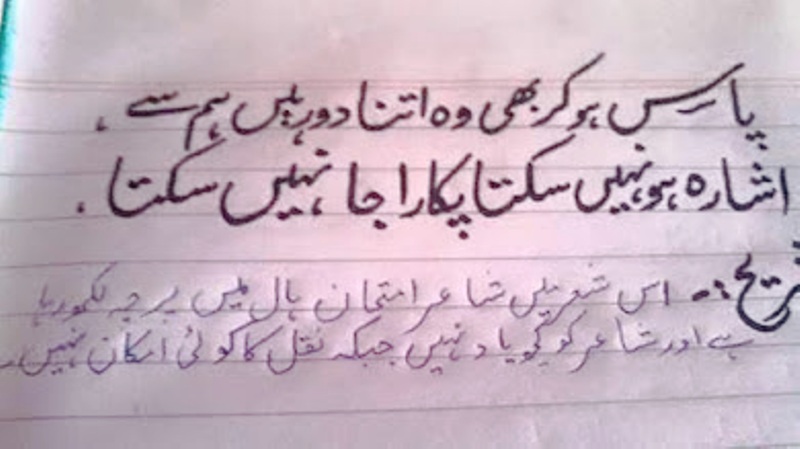 پاس ہو کر بھی وہ اتنا دور ہیں ہم سے ،
اشارہ ہو نہیں سکتا پکارا جا نہیں سکتا .
تشریح :- اس شعر میں شاعر امتحان ہال میں پرچہ لکھ رہا
ہے اور شاعر کو کچھ یاد نہیں جبکہ نقل کا کوئی امکان نہیں ۔